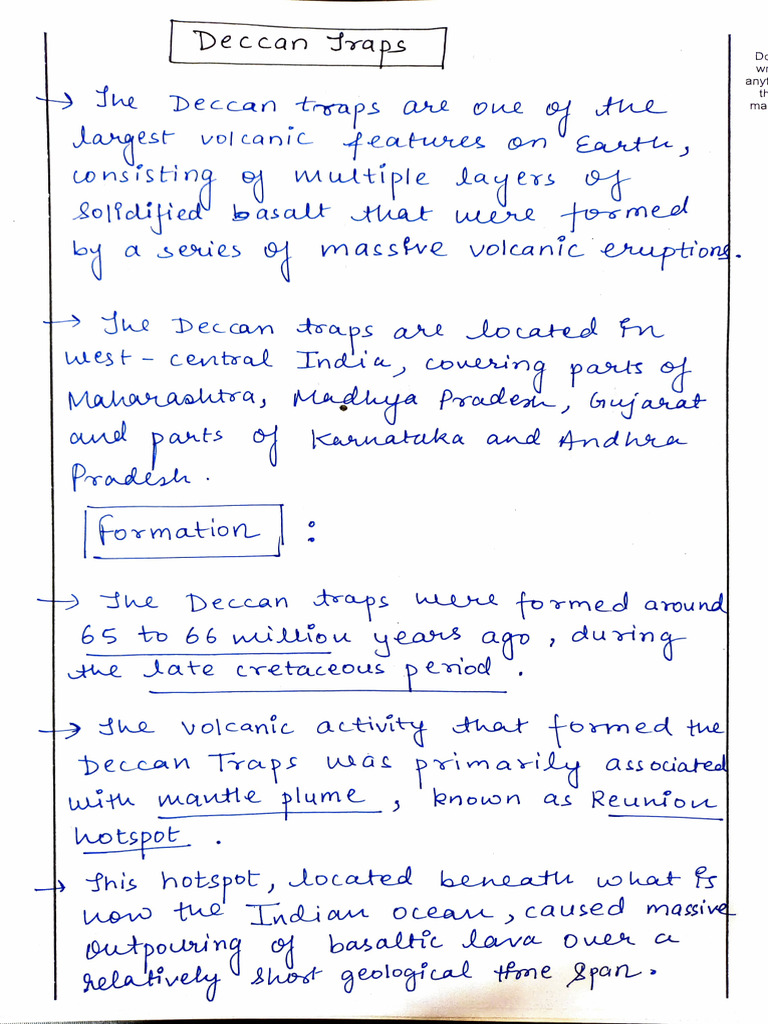 Deccan Traps
Do
wr
anyt
th
ma
→ The Deccan traps are one of the
largest volcanic features on Earth,
consisting of multiple layers of
solidified basalt that were formed
by a series of massive volcanic eruptions.
→ The Deccan traps are located in
west-central India, covering parts of
Maharashtra, Madhya Pradesh, Gujarat
and parts of Karnataka and Andhra
Pradesh.
formation :
→ The Deccan traps were formed around
65 to 66 million years ago, during
the late cretaceous period.
→ The volcanic activity that formed the
Deccan Traps was primarily associated
with mantle plume, known as Reunion
hotspot.
→ This hotspot, located beneath what is
now the Indian ocean, caused massive
outpouring of basaltic lava over a
relatively short geological time span.